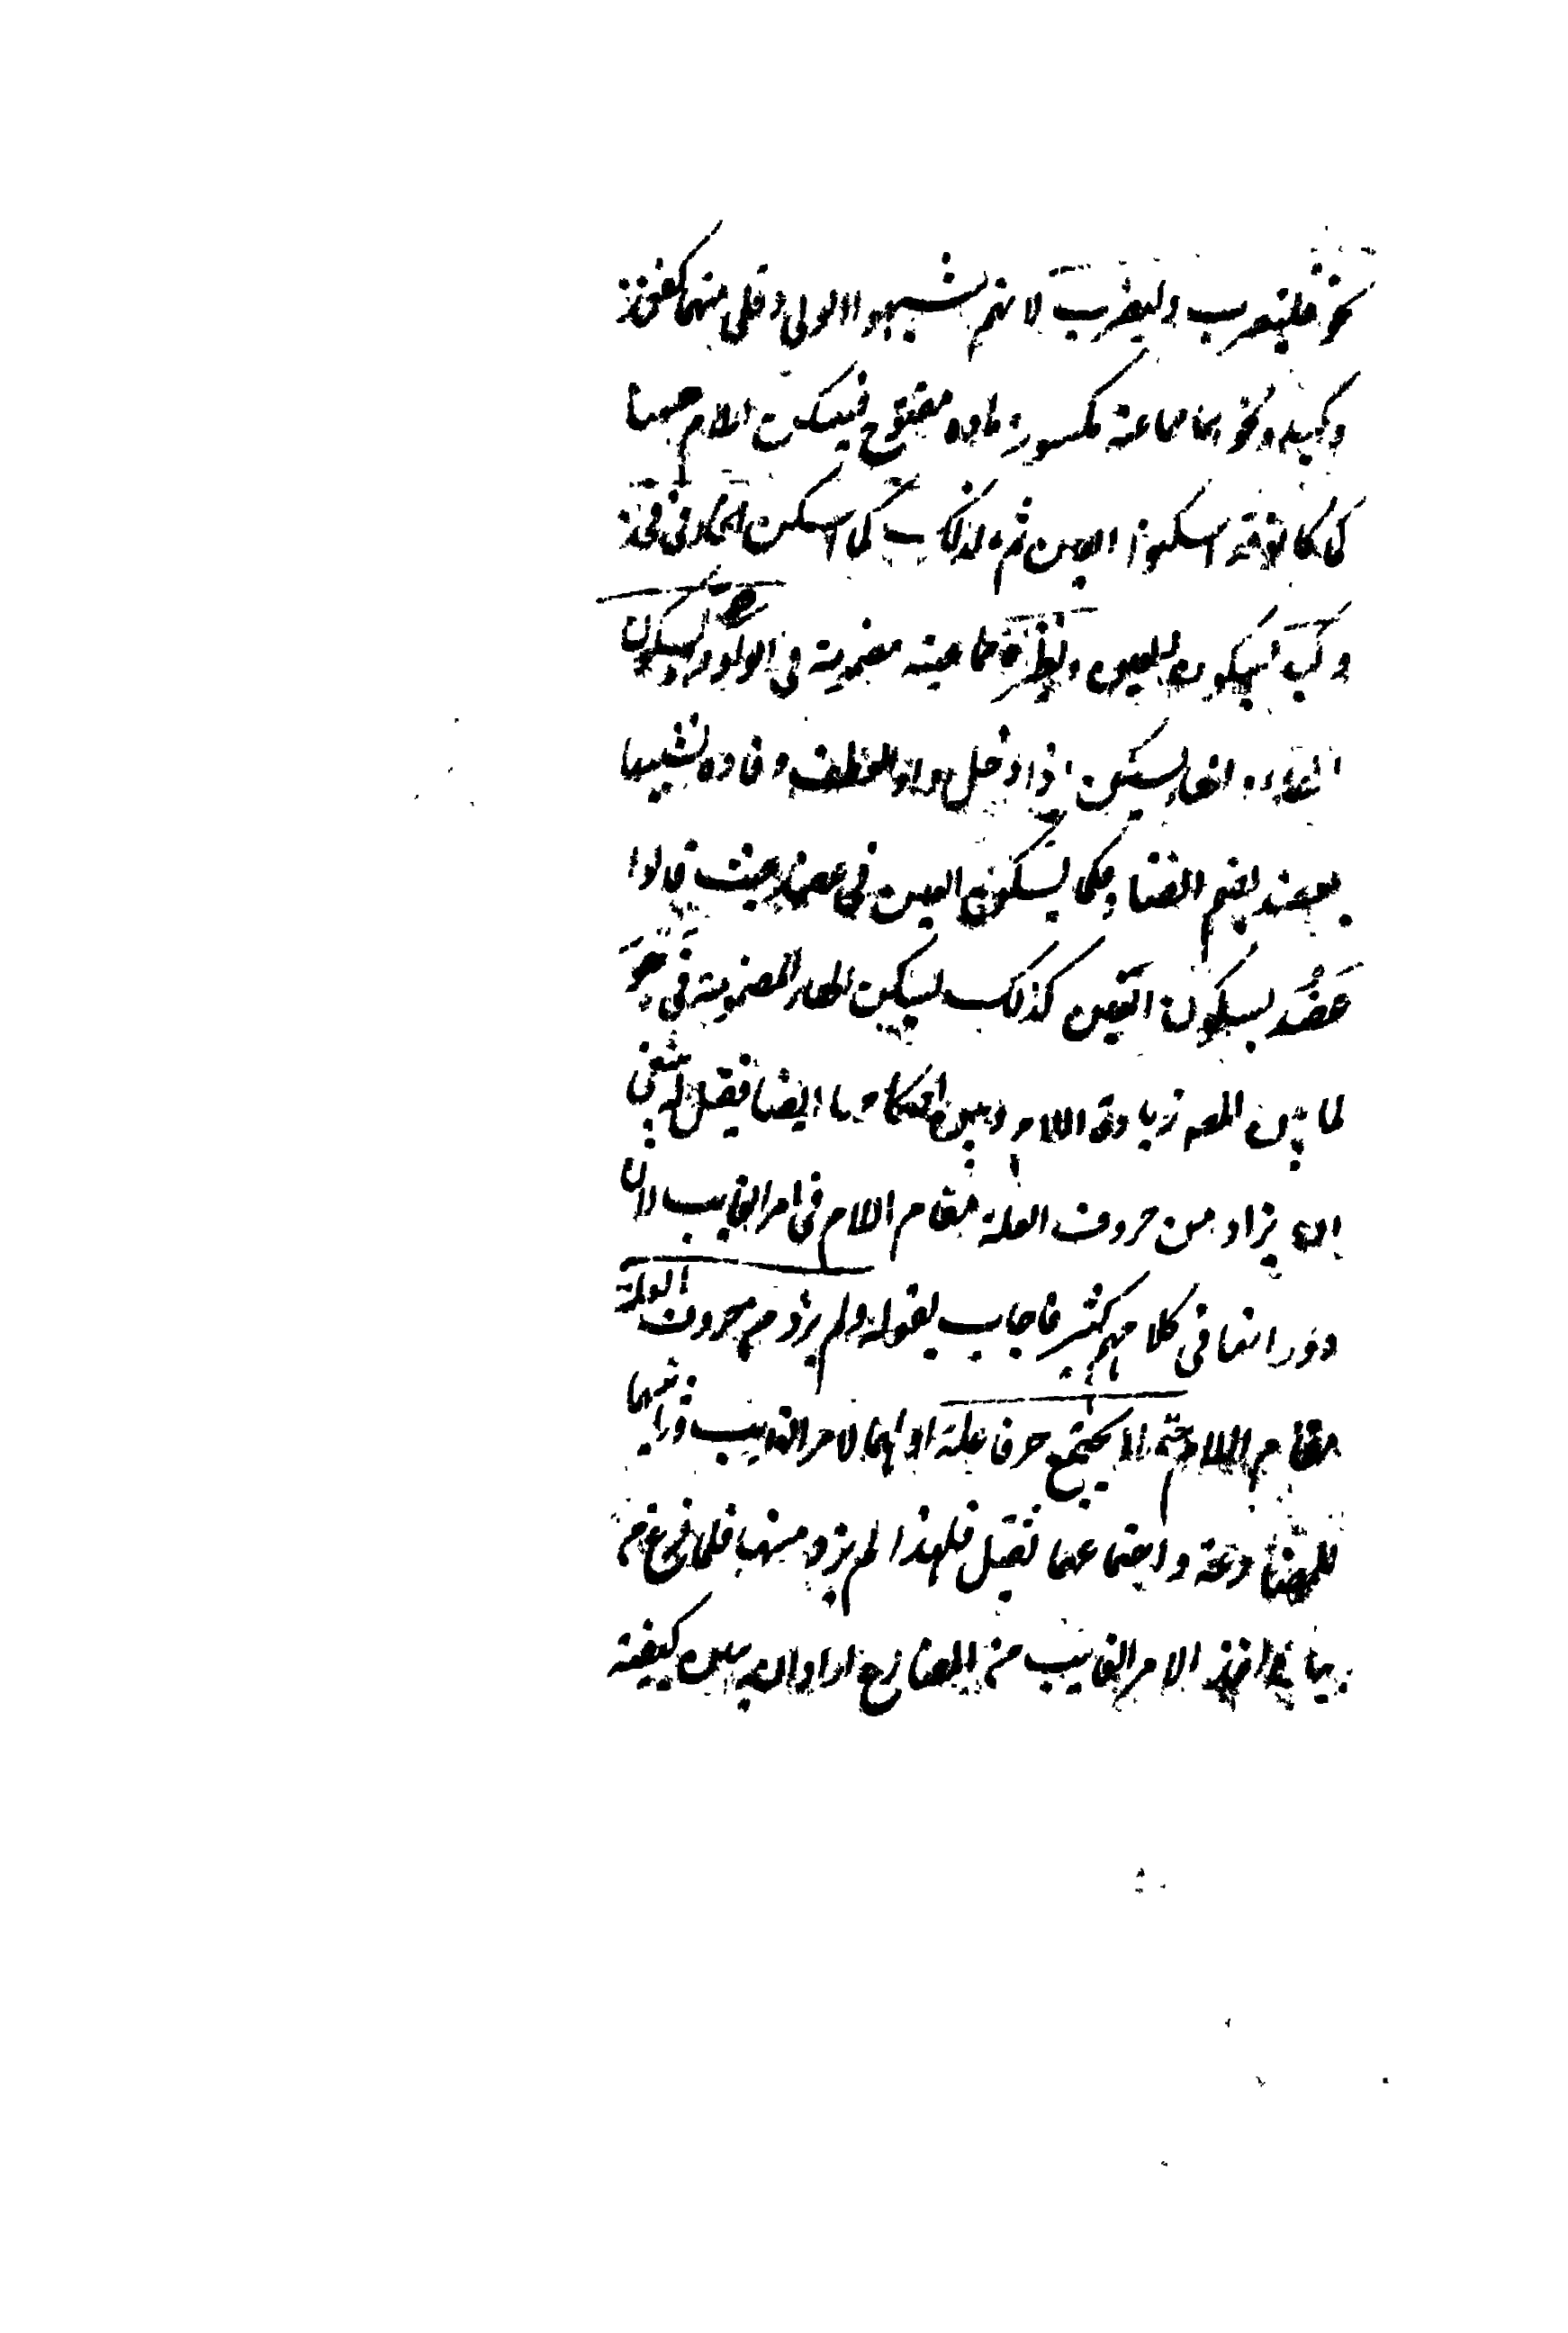 نحو فليضرب وليضرب لانهم شبهوا الاولى وقلى منهما كفخذ
وكبد ونحوهما مما عينه مكسورة وفاؤه مفتوح فيسكن اللام منهما
كما كانوا قد اسكنوا العين ثم ولذلك كما اسكن الخاء في فخذ
وكبد بسكون العين ونظيره مما عينه مضمومة في الواو وهو بسكون
الهاء وانها يسكن اذا دخل واو العطف وفاؤه تشبيها
بعضد بضم الضاد فكما يسكنون العين في عضد حيث قالوا
عضد بسكون العين كذلك يسكن الهاء المضمومة في وهو
لما بين المصـ زيادة اللام وبين احكامها ايضا فقيل له ينبغي
ان يزاد من حروف العلة مقام اللام في امر الغايب لان
دورانها في كلامهم كثير فاجاب بقوله ولم يزد من حروف العلة
مقام اللام حتى لا يجتمع حرفا علة اولهما لامر الغايب وثانيهما
للمضارعة واجتماعهما ثقيل فلهذا لم يزد منها فلما فرغ من
بيان اخذ الامر الغايب من المضارع اراد ان يبين كيفية